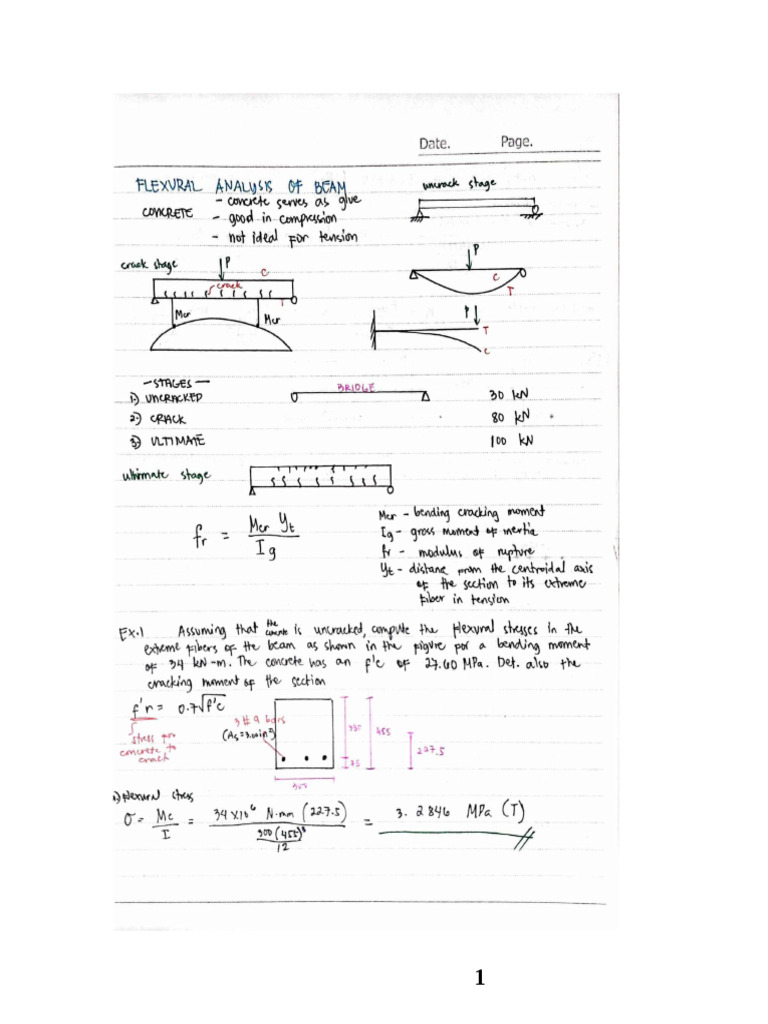 Date. Page.
FLEXURAL ANALYSIS OF BEAM
uncrack stage
CONCRETE
- concrete serves as glue
- good in compression
- not ideal for tension
crack stage
P
C
crack
T
Mcr
Mcr
P
C
T
P
T
C
-STAGES-
1) UNCRACKED
BRIDGE
30 kN
2) CRACK
80 kN
3) ULTIMATE
100 kN
ultimate stage
fr = Mcr Yt / Ig
Mcr - bending cracking moment
Ig - gross moment of inertia
fr - modulus of rupture
Yt - distance from the centroidal axis
of the section to its extreme
fiber in tension
Ex.1 Assuming that the concrete is uncracked, compute the flexural stresses in the
extreme fibers of the beam as shown in the figure for a bending moment
of 34 kN-m. The concrete has an f'c of 27.60 MPa. Det. also the
cracking moment of the section
f'r = 0.7√f'c
stress for
concrete to
crack
3 # 9 bars
(As = 3.00 in²)
455
227.5
75
300
a) flexural stress
σ = Mc / I = 34 x10⁶ N-mm (227.5) / 300(455)³ / 12 = 3.2846 MPa (T)
1